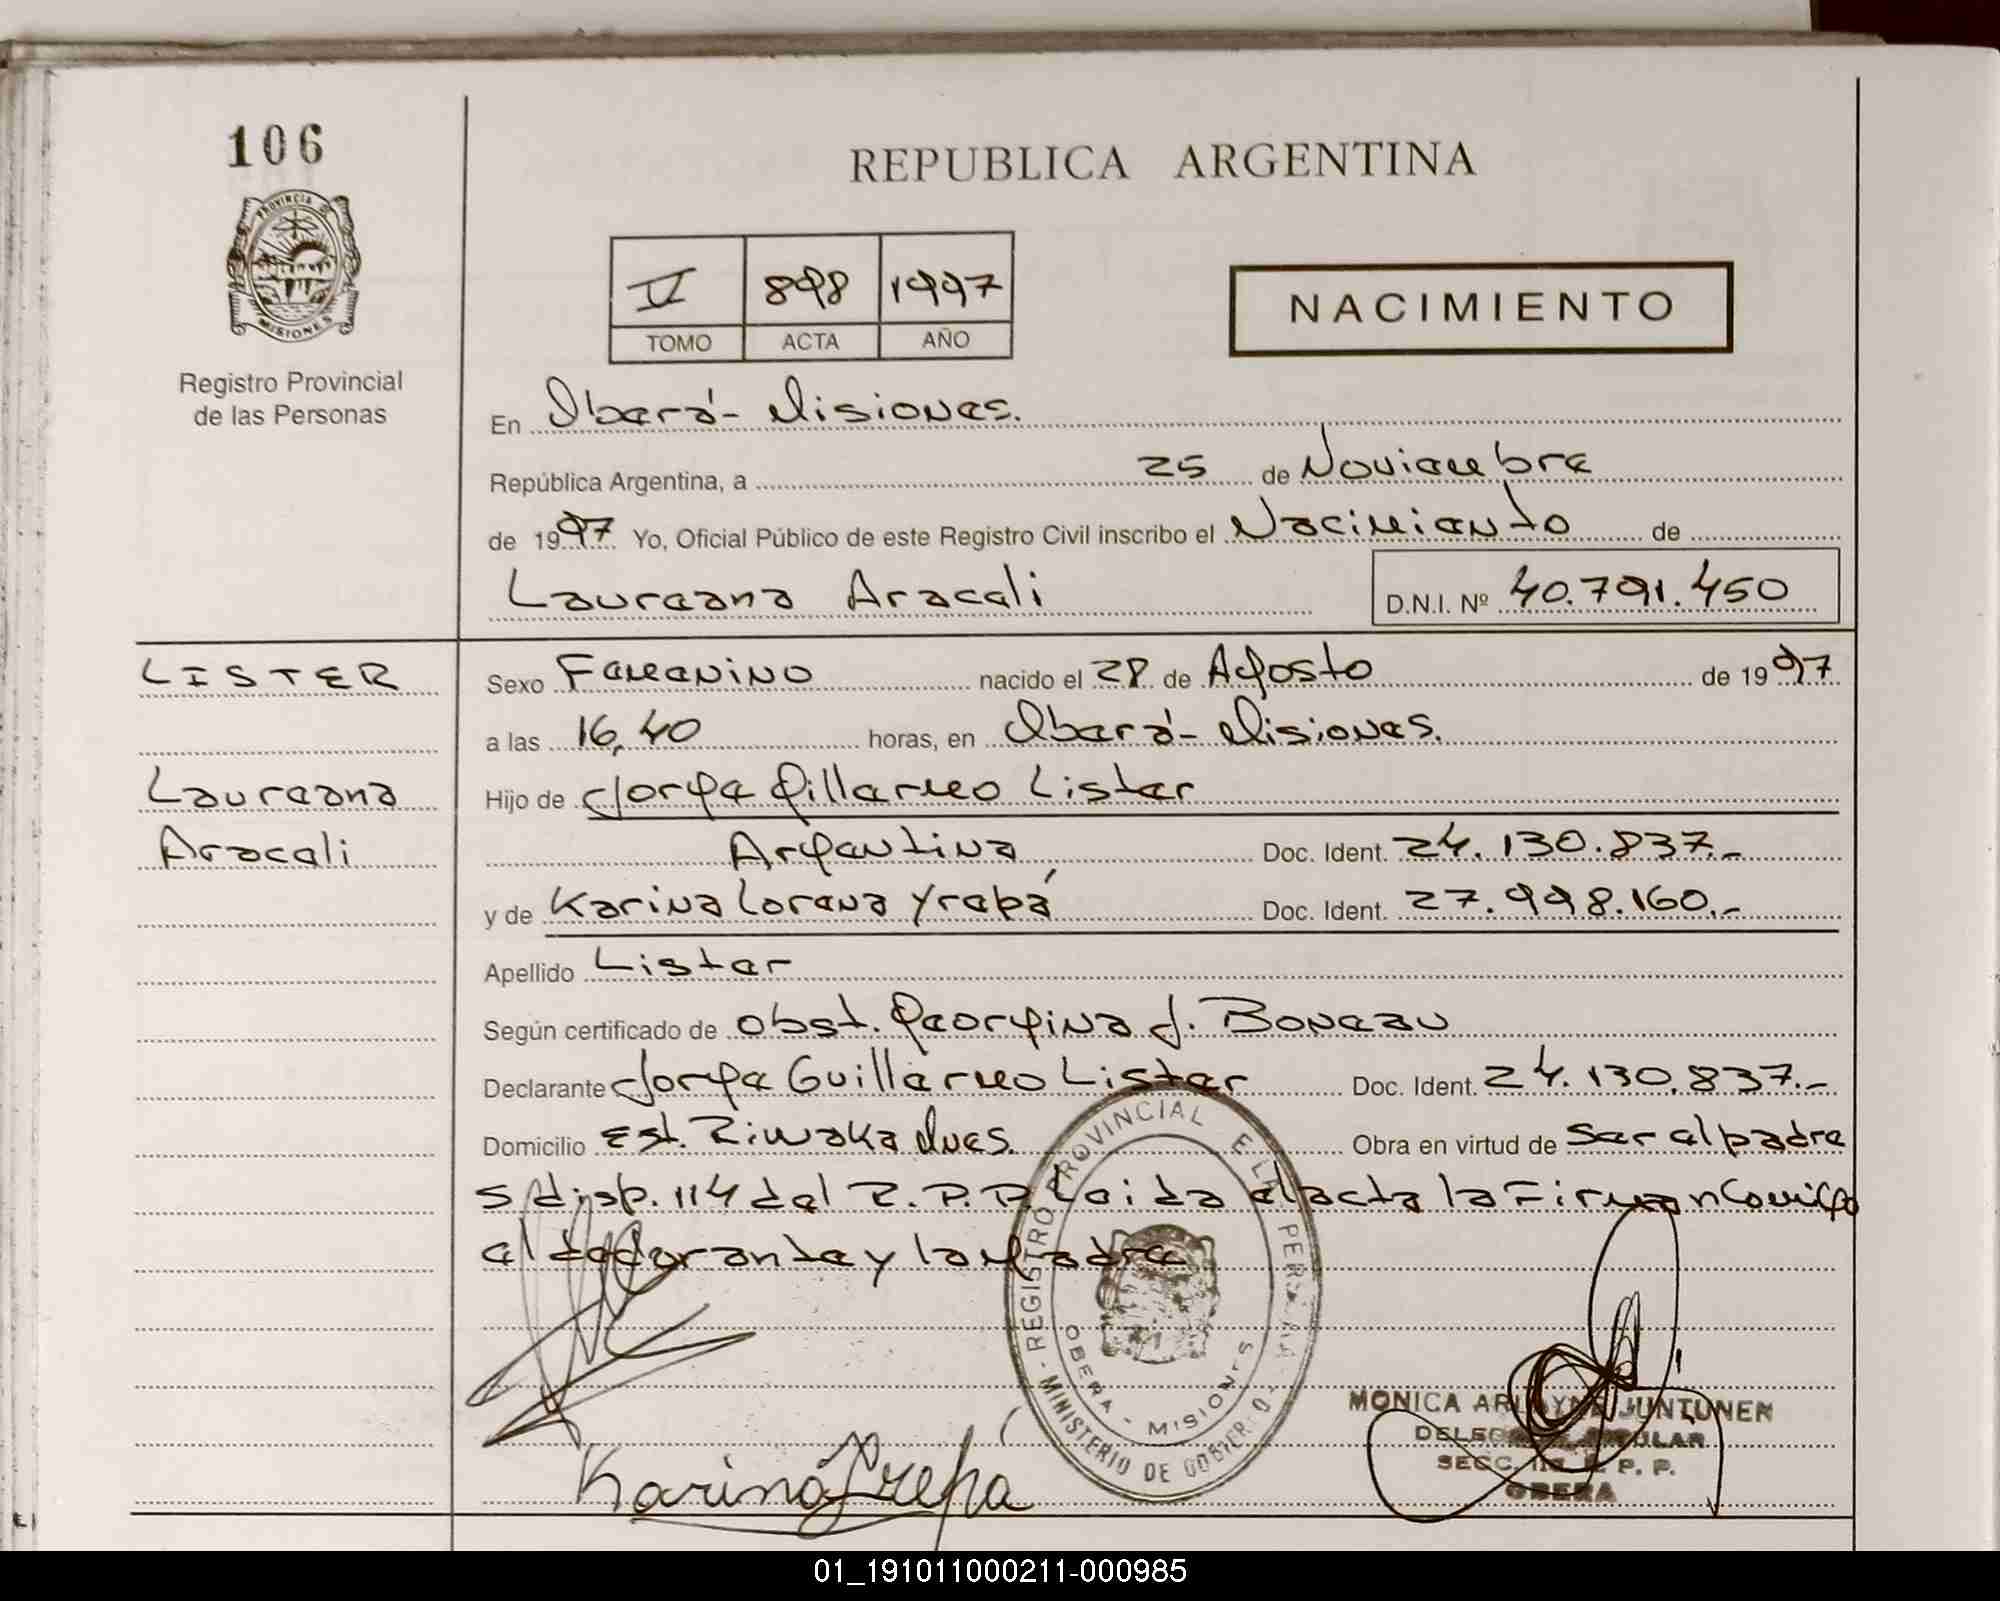 106
PROVINCIA DE
MISIONES
Registro Provincial
de las Personas
REPUBLICA ARGENTINA
V 898 1997
TOMO ACTA AÑO
NACIMIENTO
En Oberá - Misiones.
República Argentina, a 25 de Noviembre
de 1997 Yo, Oficial Público de este Registro Civil inscribo el Nacimiento de
Laureana Araceli D.N.I. Nº 40.791.450
LISTER
Laureana
Araceli
Sexo Femenino nacido el 28 de Agosto de 1997
a las 16,40 horas, en Oberá - Misiones.
Hijo de Jorge Gillermo Lister
Argentina, Doc. Ident. 24.130.837.-
y de Karina Lorena Yrepá Doc. Ident. 27.998.160.-
Apellido Lister
Según certificado de obst. Georgina J. Boneau
Declarante Jorge Guillermo Lister Doc. Ident. 24.130.837.-
Domicilio Est. Riwaka Mnes. Obra en virtud de ser el padre
s/disp. 114 del R.P.P. Leida el acta la Firman Conmigo
el declarante y la Madre
REGISTRO PROVINCIAL DE LAS PERSONAS
OBERA - MISIONES
MINISTERIO DE GOBIERNO
Karina Yrepá
MONICA JUNTUNEN
SECC. R. P. P.
OBERA
01_191011000211-000985